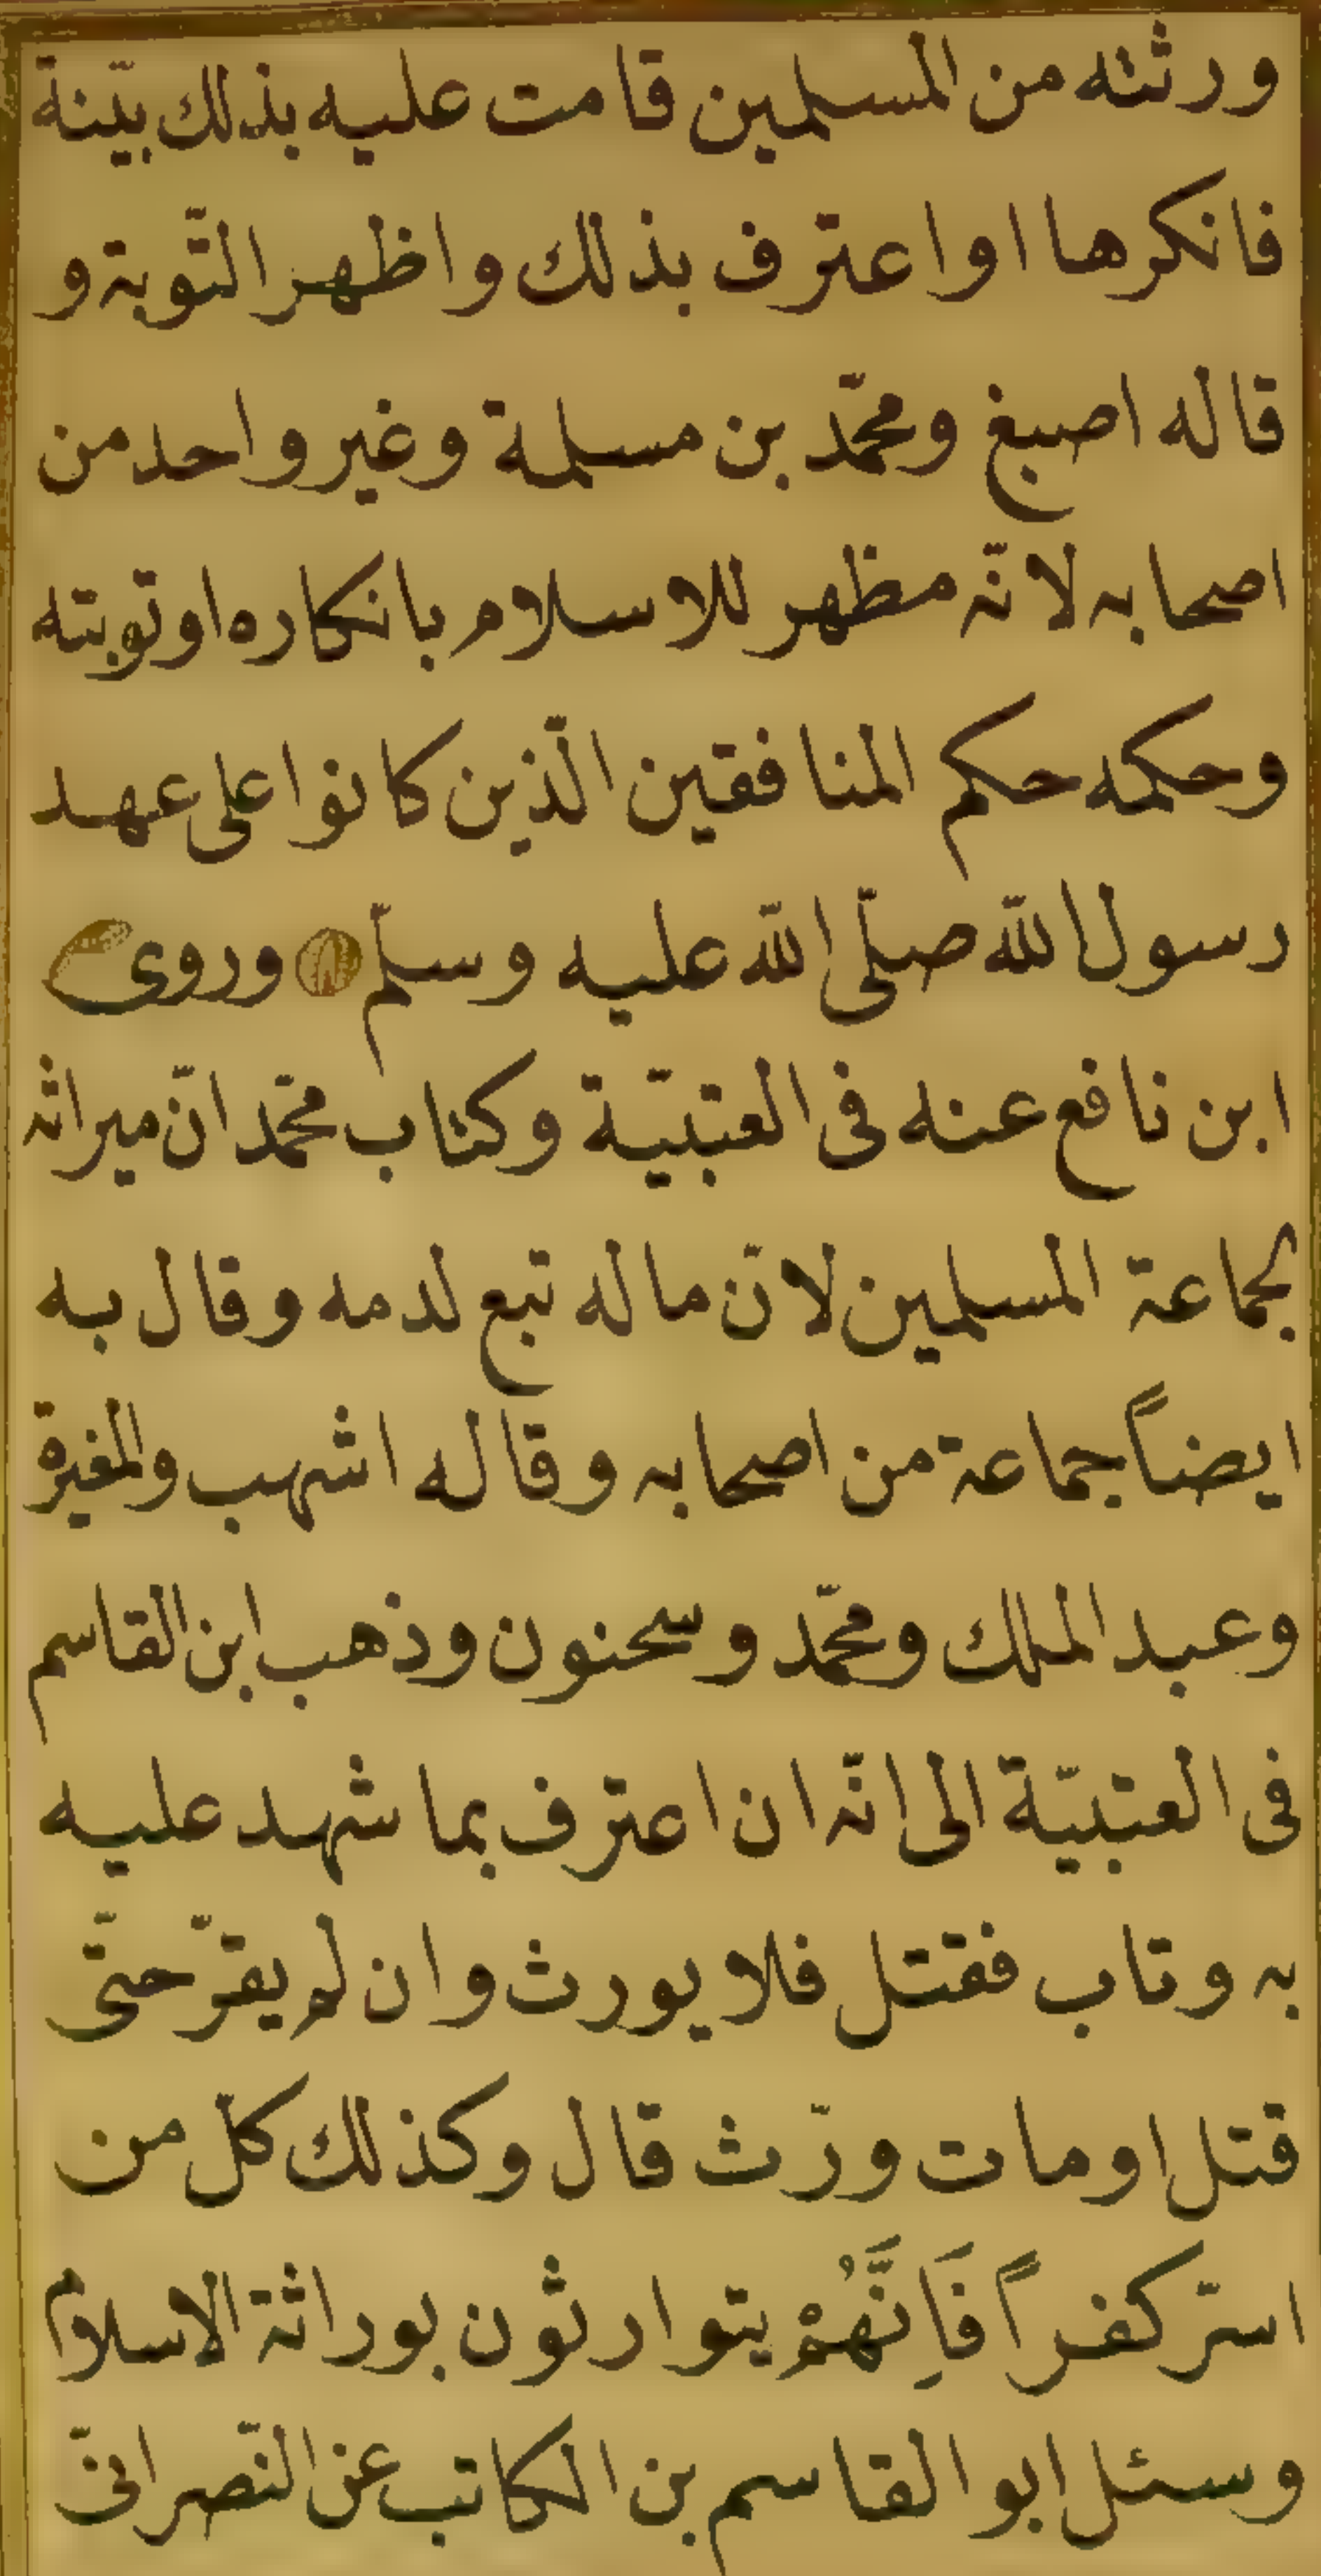 ورثته من المسلمين قامت عليه بذلك بيّنة
فانكرها او اعترف بذلك واظهر التّوبة و
قاله اصبغ ومحمّد بن مسلمة وغير واحد من
اصحابه لانّه مظهر للاسلام بانكاره او توبته
وحكمه حكم المنافقين الّذين كانوا على عهد
رسول اللّه صلّى اللّه عليه وسلّم وروى
ابن نافع عنه فى العتبيّة وكتاب محمّد انّ ميراثه
لجماعة المسلمين لانّ ماله تبع لدمه وقال به
ايضاً جماعة من اصحابه وقاله اشهب والمغيرة
وعبد الملك ومحمّد وسحنون وذهب ابن القاسم
فى العتبيّة الى انّه ان اعترف بما شهد عليه
به وتاب فقتل فلا يورث وان لم يقرّ حتّى
قتل او مات ورّث قال وكذلك كلّ من
اسرّ كفراً فَاِنَّهُمْ يتوارثون بوراثة الاسلام
وسئل ابو القاسم بن الكاتب عن النّصرانىّ